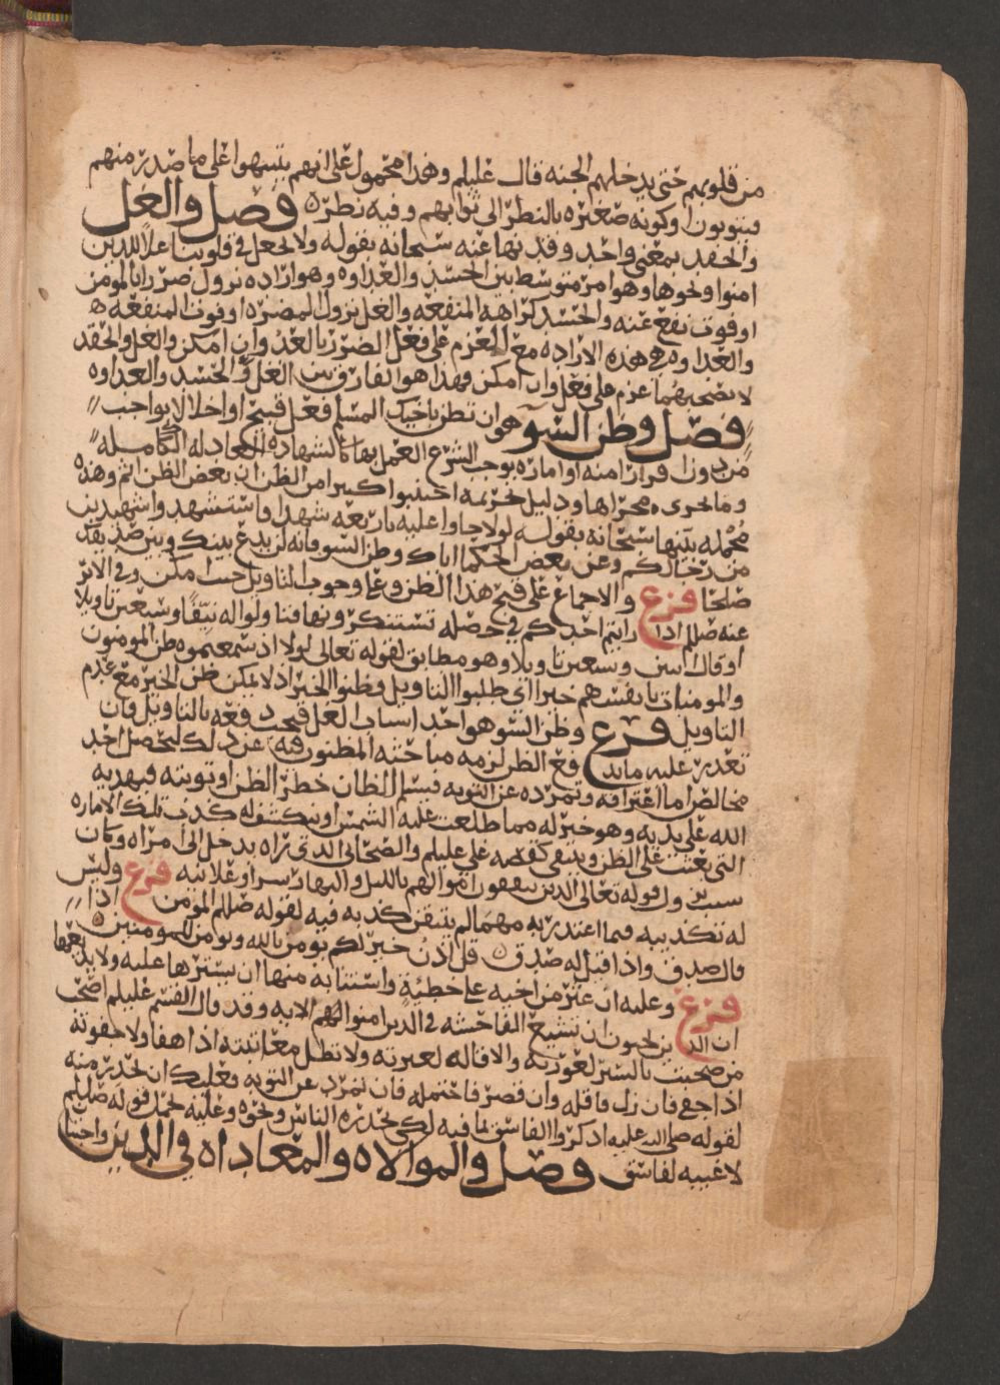 من قلوبهم حتى يدخلهم الجنه قال عليلم وهذا محمول على انهم ينبهوا على ما صدر منهم
فيتوبون او كونه صغيره بالنظر الى ثوابهم وفيه نظر ه فصل والغل
والحقد بمعنى واحد وقد نها عنه سبحانه بقوله ولا تجعل في قلوبنا غلا للذين
امنوا ونحوها وهوا مر متوسط بين الحسد والعداوه وهو اراده نزول ضرر بالمومن
او فوت نفع عنه والحسد كراهه المنفعه والغل نزول المضره او فوت المنفعه ه
والعداوه هي هذه الاراده مع العزم على فعل الضرر بالعدو ان امكن والغل والحقد
لا يصحبهما عزم على فعل وان امكن فهذا هو الفارق بين الغل و الحسد والعداوه
فصل وظن السو هو ان تظن باخيك المسلم فعل قبيح او اخلالا بواجب
من دون اقرار منه او اماره يوجب الشرع العمل بها كالشهاده العادله الكامله
وما يجرى مجراها ودليل تحريمه اجتنبوا كثيرا من الظن ان بعض الظن اثم وهذه
مجمله بينها سبحانه بقوله لولا جاوا عليه باربعه شهدا واستشهدوا شهيدين
من رجالكم وعن بعض الحكما اياك وظن السو فانه لن يدع بينك وبين صديقك
صلحا فرع والاجماع على قبح هذا الظن وعلى وجوب التاويل حيث امكن وفي الاثر
عنه صللم اذا رايتم احدكم في خصله تستنكرونها فتاولوا له نيفا وسبعين تاويلا
او قال اثنين وسبعين تاويلا وهو مطابق لقوله تعالى لولا اذ سمعتموه ظن المومنون
والمومنات بانفسهم خيرا اي طلبوا التاويل فظنوا الخير اذ لا يمكن ظن الخير مع عدم
التاويل فرع وظن السو هو احد اسباب الغل فيجب دفعه بالتاويل فان
تعذر عليه ما يدفع الظن لزمه مباحثه المظنون فيه عن ذلك ليحصل احد
مخالص اما اعترافه وتمرده عن التوبه فيسلم الظان خطر الظن او توبته فيهديه
الله على يديه وهو خير له مما طلعت عليه الشمس او ينكشف له كذب تلك الاماره
التي بعثت على الظن وينفى كقصه علي عليلم والصحابي الذي راه يدخل الى مراه وكان
سبب نزول قوله تعالى الذين ينفقون اموالهم بالليل والنهار سرا وعلانيه فرع وليس
له تكذيبه فيما اعتذر به مهما لم يتيقن كذبه فيه لقوله صللم المومن اذا
قال صدق واذا قيل له صدق ه قل اذن خير لكم يومن بالله ويومن للمومنين ه
فرع وعليه ان عثر من اخيه على خطيئة واستتابه منها ان يسترها عليه ولا يذيعها
ان الذين يحبون ان تشيع الفاحشه في الذين امنوا لهم الايه وقد قال القسم عليلم اصحب
من صحبت بالستر لعورته والاقاله لعثرته ولا تطل معاتبته اذا هفا ولا جفوته
اذا جفى فان زل فاقله وان قصر فاحتمله فان تمرد عن التوبه فعليك ان تحذر منه
لقوله صلى الله عليه اذكروا الفاسق بما فيه لكي يحذره الناس ونحوه وعليه يحمل قوله صللم
لا غيبه لفاسق فصل والموالاه والمعاداه في الدين واجبتا